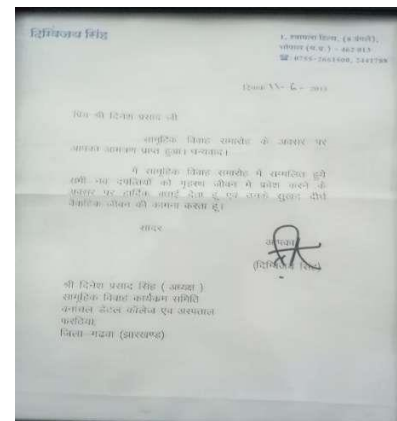 दिग्विजय सिंह
1, श्यामला हिल्स, (6 बंगले),
भोपाल (म.प्र.) - 462 013
दिनांक 11-6-2013
प्रिय श्री दिनेश प्रसाद जी,
सामुहिक विवाह समारोह के अवसर पर
आपका आमंत्रण प्राप्त हुआ। धन्यवाद।
मैं सामुहिक विवाह समारोह में सम्मलित हुये
सभी नव दंपत्तियों को गृहस्थ जीवन में प्रवेश करने के
अवसर पर हार्दिक बधाई देता हूं एवं उनके सुखद दीर्घ
वैवाहिक जीवन की कामना करता हूं।
सादर
आपका
(दिग्विजय सिंह)
श्री दिनेश प्रसाद सिंह ( अध्यक्ष )
सामुहिक विवाह कार्यक्रम समिति
वनांचल डेंटल कॉलेज एवं अस्पताल
फरठिया,
जिला-गढवा (झारखण्ड)